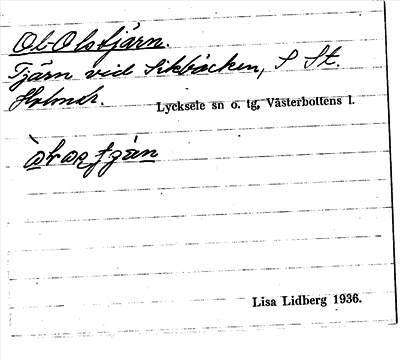 Ol-Olstjärn.
Tjärn vid Sikbäcken, S St.
Holmtr. Lycksele sn o. tg, Västerbottens l.
Lisa Lidberg 1936.